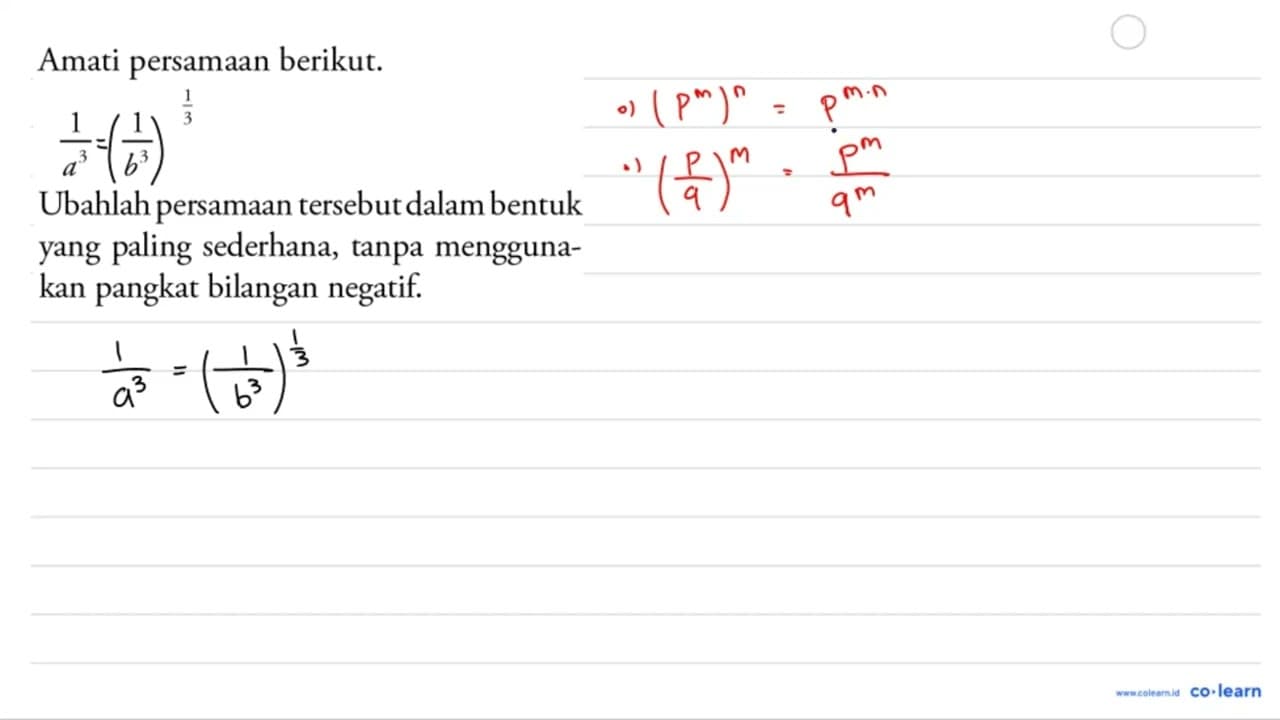 Amati persamaan berikut.
1/a³ = (1/b³)^(1/3)
Ubahlah persamaan tersebut dalam bentuk
yang paling sederhana, tanpa mengguna-
kan pangkat bilangan negatif.
•) (p^m)^n = p^(m·n)
•) (p/q)^m = p^m/q^m
1/a³ = (1/b³)^(1/3)
www.colearn.id co·learn